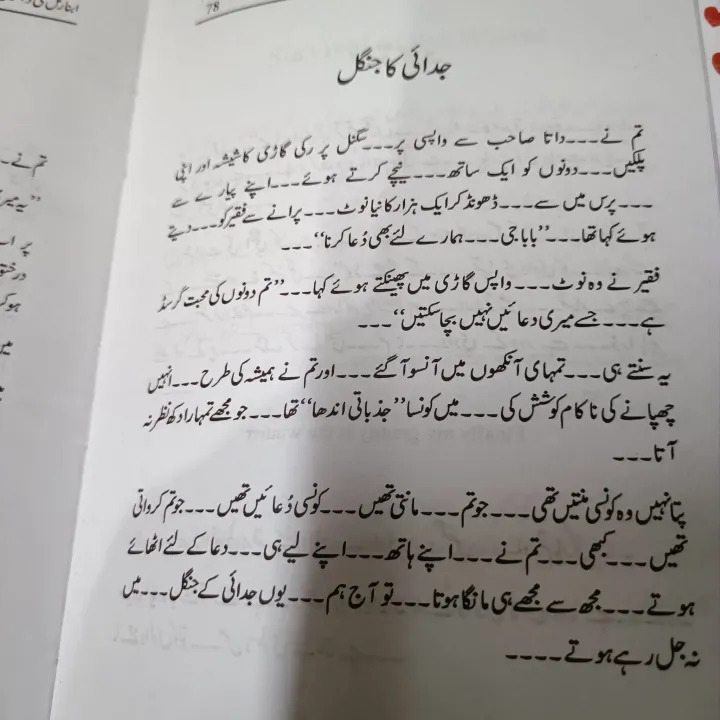 78
جدائی کا جنگل
تم نے۔۔۔داتا صاحب سے واپسی پر۔۔۔سگنل پر رکی گاڑی کا شیشہ اور اپنی
پلکیں۔۔۔دونوں کو ایک ساتھ۔۔۔نیچے کرتے ہوئے۔۔۔اپنے پیارے سے
۔۔۔پرس میں سے۔۔۔ڈھونڈ کر ایک ہزار کا نیا نوٹ۔۔۔پرانے سے فقیر کو۔۔۔دیتے
ہوئے کہا تھا۔۔۔’’بابا جی۔۔۔ہمارے لئے بھی دُعا کرنا‘‘۔۔۔
فقیر نے وہ نوٹ۔۔۔واپس گاڑی میں پھینکتے ہوئے کہا۔۔۔’’تم دونوں کی محبت گرسڈ
ہے۔۔۔جسے میری دعائیں نہیں بچا سکتیں‘‘۔۔۔
یہ سنتے ہی۔۔۔تمہای آنکھوں میں آنسو آ گئے۔۔۔اور تم نے ہمیشہ کی طرح۔۔۔انہیں
چھپانے کی ناکام کوشش کی۔۔۔میں کونسا ’’جذباتی اندھا‘‘ تھا۔۔۔جو مجھے تمہارا دکھ نظر نہ
آتا۔۔۔
پتا نہیں وہ کونسی منتیں تھی۔۔۔جو تم۔۔۔مانتی تھیں۔۔۔کونسی دُعائیں تھیں۔۔۔جو تم کرواتی
تھیں۔۔۔کبھی۔۔۔تم نے۔۔۔اپنے ہاتھ۔۔۔اپنے لیے ہی۔۔۔دعا کے لئے اٹھائے
ہوتے۔۔۔مجھ سے مجھے ہی مانگا ہوتا۔۔۔تو آج ہم۔۔۔یوں جدائی کے جنگل۔۔۔میں
نہ جل رہے ہوتے۔۔۔۔
تم نے۔۔